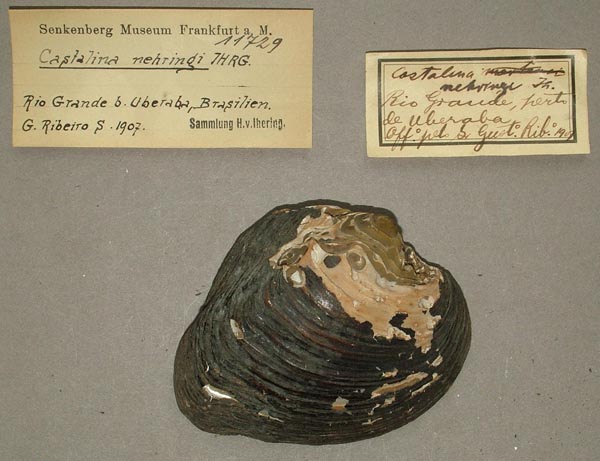 Senkenberg Museum Frankfurt a. M.
11729
Castalina nehringi IHRG.
Rio Grande b. Uberaba, Brasilien.
G. Ribeiro S. 1907.
Sammlung H.v.Ihering.
Castalina
nehringi Ih.
Rio Grande, perto
de Uberaba
Off.º pelo Sr Gust.º Rib.º